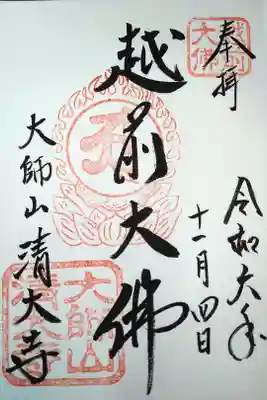 奉拝
越州
大佛
令和六年
十一月四日
越前大佛
大師山清大寺
大師山
清大寺